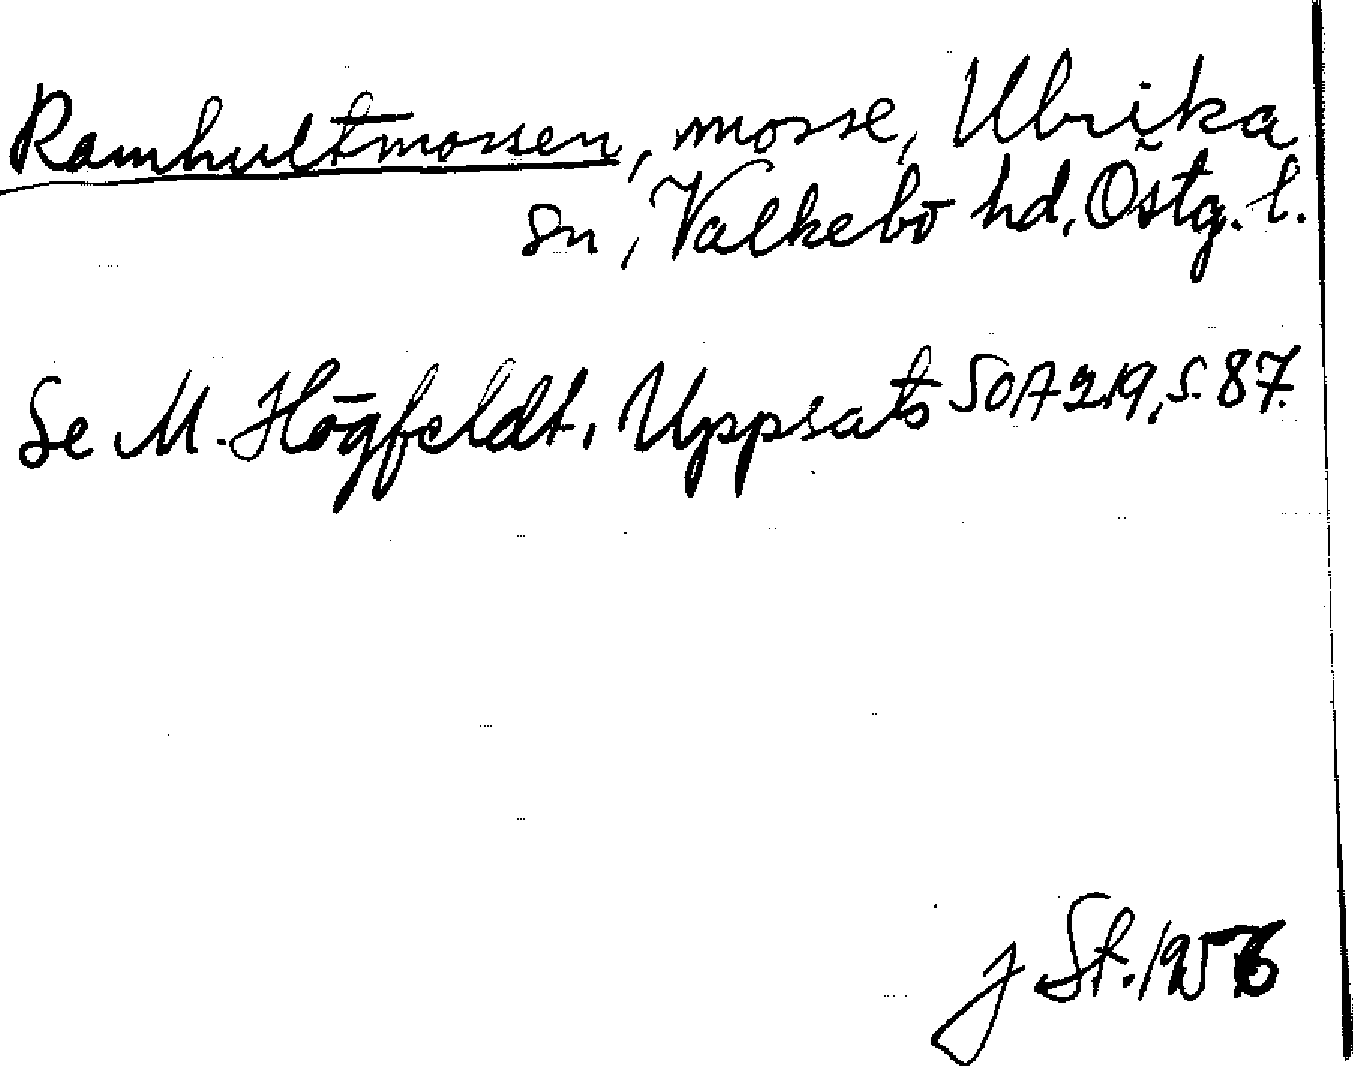 Ramhultmossen, mosse, Ulrika
sn, Valkebo hd, Östg. l.
Se M. Högfeldt, Uppsats SOA 219, s. 87.
J St. 1956